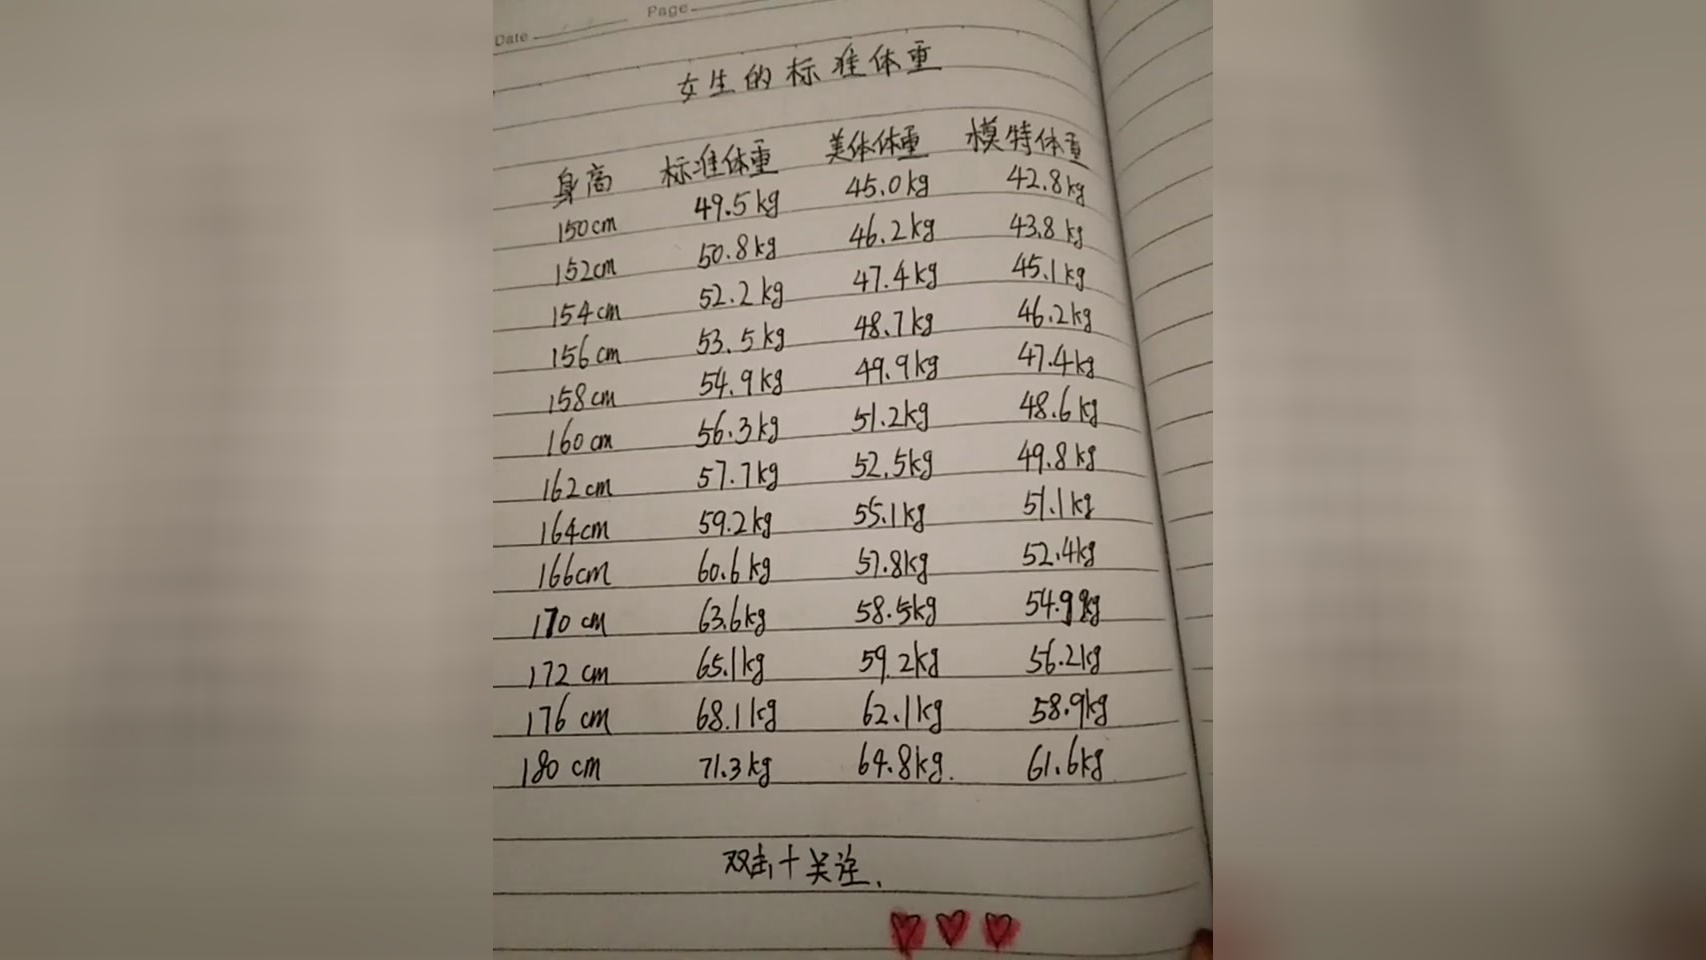 Date Page
女生的标准体重
身高 标准体重 美体体重 模特体重
150cm 49.5kg 45.0kg 42.8kg
152cm 50.8kg 46.2kg 43.8kg
154cm 52.2kg 47.4kg 45.1kg
156cm 53.5kg 48.7kg 46.2kg
158cm 54.9kg 49.9kg 47.4kg
160cm 56.3kg 51.2kg 48.6kg
162cm 57.7kg 52.5kg 49.8kg
164cm 59.2kg 55.1kg 51.1kg
166cm 60.6kg 57.8kg 52.4kg
170cm 63.6kg 58.5kg 54.9kg
172cm 65.1kg 59.2kg 56.2kg
176cm 68.1kg 62.1kg 58.9kg
180cm 71.3kg 64.8kg. 61.6kg
双击+关注、